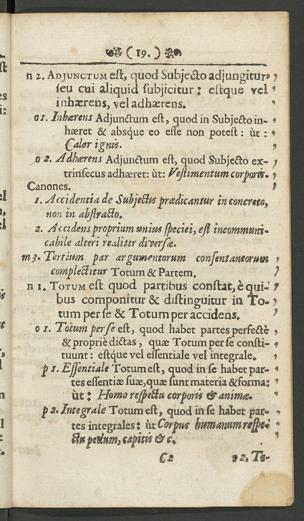 ( 19. )
n 2. ADJUNCTUM est, quod Subjecto adjungitur,
seu cui aliquid subjicitur: estque vel
inhærens, vel adhærens.
o 1. Inhærens Adjunctum est, quod in Subjecto in-
hæret & absque eo esse non potest: ùt:
Calor ignis.
o 2. Adhærens Adjunctum est, quod Subjecto ex-
trinsecus adhæret: ùt: Vestimentum corporis.
Canones.
1. Accidentia de Subjectis prædicantur in concreto,
non in abstracto.
2. Accidens proprium unius speciei, est incommuni-
cabile alteri realiter diversæ.
m 3. Tertium par argumentorum consentaneorum
complectitur Totum & Partem.
n 1. TOTUM est quod partibus constat, è qui-
bus componitur & distinguitur in To-
tum per se & Totum per accidens.
o 1. Totum per se est, quod habet partes perfectè
& propriè dictas, quæ Totum per se consti-
tuunt: estque vel essentiale vel integrale.
p 1. Essentiale Totum est, quod in se habet par-
tes essentiæ suæ, quæ sunt materia & forma:
ùt: Homo respectu corporis & animæ.
p 2. Integrale Totum est, quod in se habet par-
tes integrales: ùt Corpus humanum respe-
ctu pedum, capitis &c.
C2 p2. To-